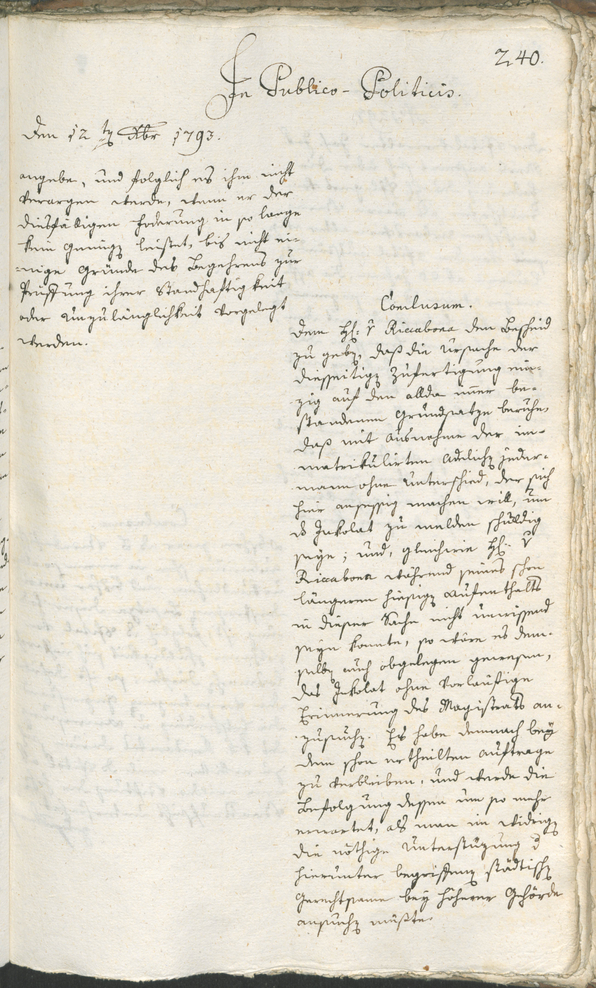 240.
In Publico-Politicis.
Den 12 ten Xbr 1793.
angebe, und folglich es ihm nicht
verargen werde, wenn er der
diesfäligen Foderung in so lange
kein Genüg leistet, bis nicht ei-
nige Gründe des Begehrens zur
Prüffung ihrer Standhaftigkeit
oder Unzulänglichkeit vorgelegt
werden.
Conclusum.
Dem H: v Riccabona den Bescheid
zu geben, daß die Ursache der
diesseitigen Zufertigung ein-
zig auf den allda immer be-
standenen Grundsatze beruhe,
daß mit Ausnahme der im-
matrikulirten Adelichen jeder-
mann ohne Unterschied, der sich
hier ansessig machen will, um
das Inkolat zu melden schuldig
seye; und, gleichwie H: v
Riccabona während seines schon
längeren hiesigen Aufenthalts
in dieser Sache nicht unwissend
seyn konnte, so wäre es dem-
selben auch obgelegen gewesen,
das Inkolat ohne vorläufige
Erinnerung des Magistrats an-
zusuchen. Es habe demnach bey
dem schon ertheilten Auftrage
zu verbleiben, und werde die
Befolgung dessen um so mehr
erwartet, als man im widrigen
die nöthige Unterstüzung der
hierunter begriffenen städtischen
Gerechtsame bey höherer Behörde
ansuchen müßte.